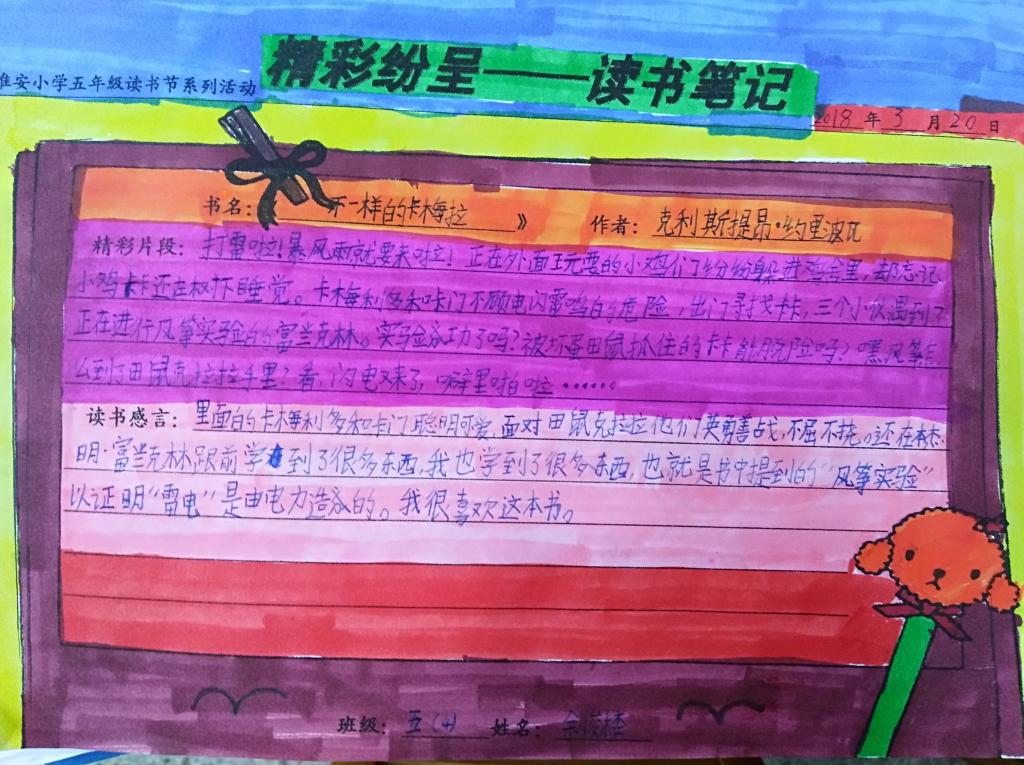 精彩纷呈——读书笔记
淮安小学五年级读书节系列活动
2018年3月20日
书名：不一样的卡梅拉》 作者：克利斯提昂·约里波瓦
精彩片段：打雷啦！暴风雨就要来啦！正在外面玩耍的小鸡们纷纷躲进鸡舍里，却忘记
小鸡卡卡还在树下睡觉。卡梅利多和咔门不顾电闪雷鸣的危险，出门寻找卡卡，三个小伙遇到了
正在进行风筝实验的富兰克林。实验成功了吗？被坏蛋田鼠抓住的卡卡能脱险吗？嘿，风筝怎
么到了田鼠克拉拉手里？看，闪电又来了，噼里啪啦……
读书感言：里面的卡梅利多和卡门聪明可爱，面对田鼠克拉拉他们英勇善战，不屈不挠。还在本杰
明·富兰克林跟前学到了很多东西，我也学到了很多东西，也就是书中提到的“风筝实验”
以证明“雷电”是由电力造成的。我很喜欢这本书。
班级：五(4) 姓名：